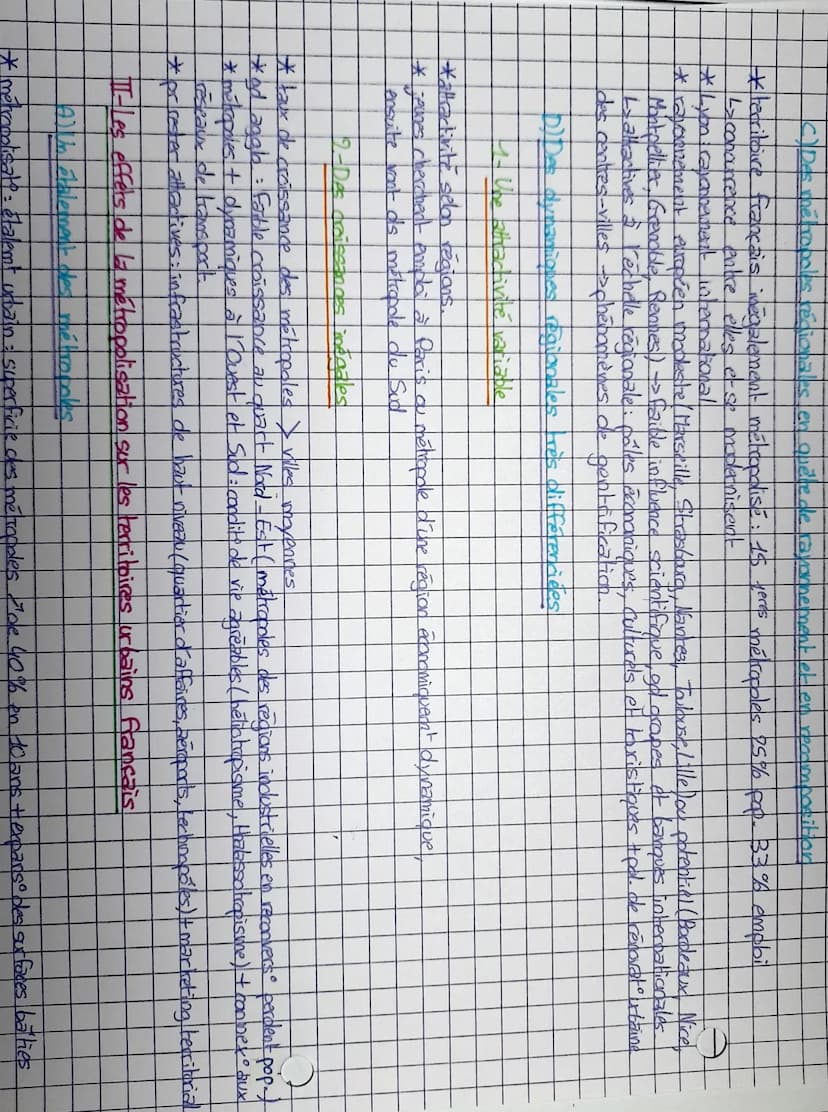 C) Des métropoles régionales en quête de rayonnement et en recomposition
* territoire français inégalement métropolisé : 15 1ères métropoles 25% pop. 33% emploi
↳ concurrence entre elles et se modernisent
* Lyon : rayonnement international
* rayonnement européen modeste (Marseille, Strasbourg, Nantes, Toulouse, Lille) ou potentiel (Bordeaux, Nice,
Montpellier, Grenoble, Rennes) → faible influence scientifique, gd groupes et banques internationales.
↳ attractives à l'échelle régionale : pôles économiques, culturels et touristiques + pol. de rénovat° urbaine
des centres-villes → phénomènes de gentrification.
D) Des dynamiques régionales très différenciées
1- Une attractivité variable
* attractivité selon régions.
* jeunes cherchent emploi à Paris ou métropole d'une région économiquemt dynamique,
ensuite vont ds métropole du Sud
2- Des croissances inégales
* taux de croissance des métropoles > villes moyennes
* gd agglo : faible croissance au quart Nord-Est (métropoles des régions industrielles en reconvers° perdent pop.)
* métropoles + dynamiques à l'Ouest et Sud : condit° de vie agréables (héliotropisme, thalassotropisme) + connex° aux
réseaux de transport.
* pr rester attractives : infrastructures de haut niveau (quartier d'affaires, aéroports, technopôles) + marketing territorial
II- Les effets de la métropolisation sur les territoires urbains français
A) Un étalement des métropoles
* métropolisat° : étalemt urbain : superficie des métropoles ↗ de 40% en 10 ans + expans° des surfaces bâties